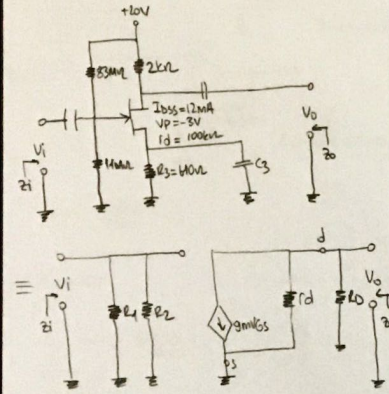 +20V
83MΩ
2kΩ
IDSS=12mA
VP=-3V
rd = 100kΩ
Vi
Zi
11MΩ
R3=610Ω
C3
Vo
Zo
≡
Vi
Zi
R1
R2
gmVGs
rd
d
RD
Vo
Z
s